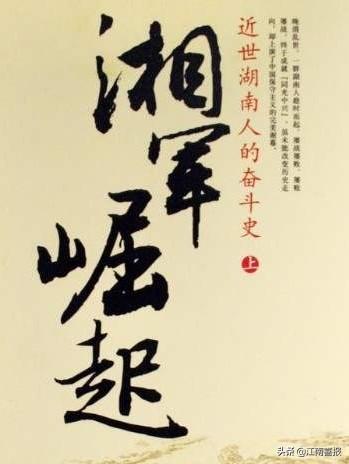 晚清乱世,一群湖南人趁时而起,屡战屡败、屡败
屡战,终于成就「同光中兴」,虽未能改变历史走
向,却上演了中国保守主义的完美谢幕。
近世湖南人的奋斗史
上
湘军崛起
头条@江南喜报